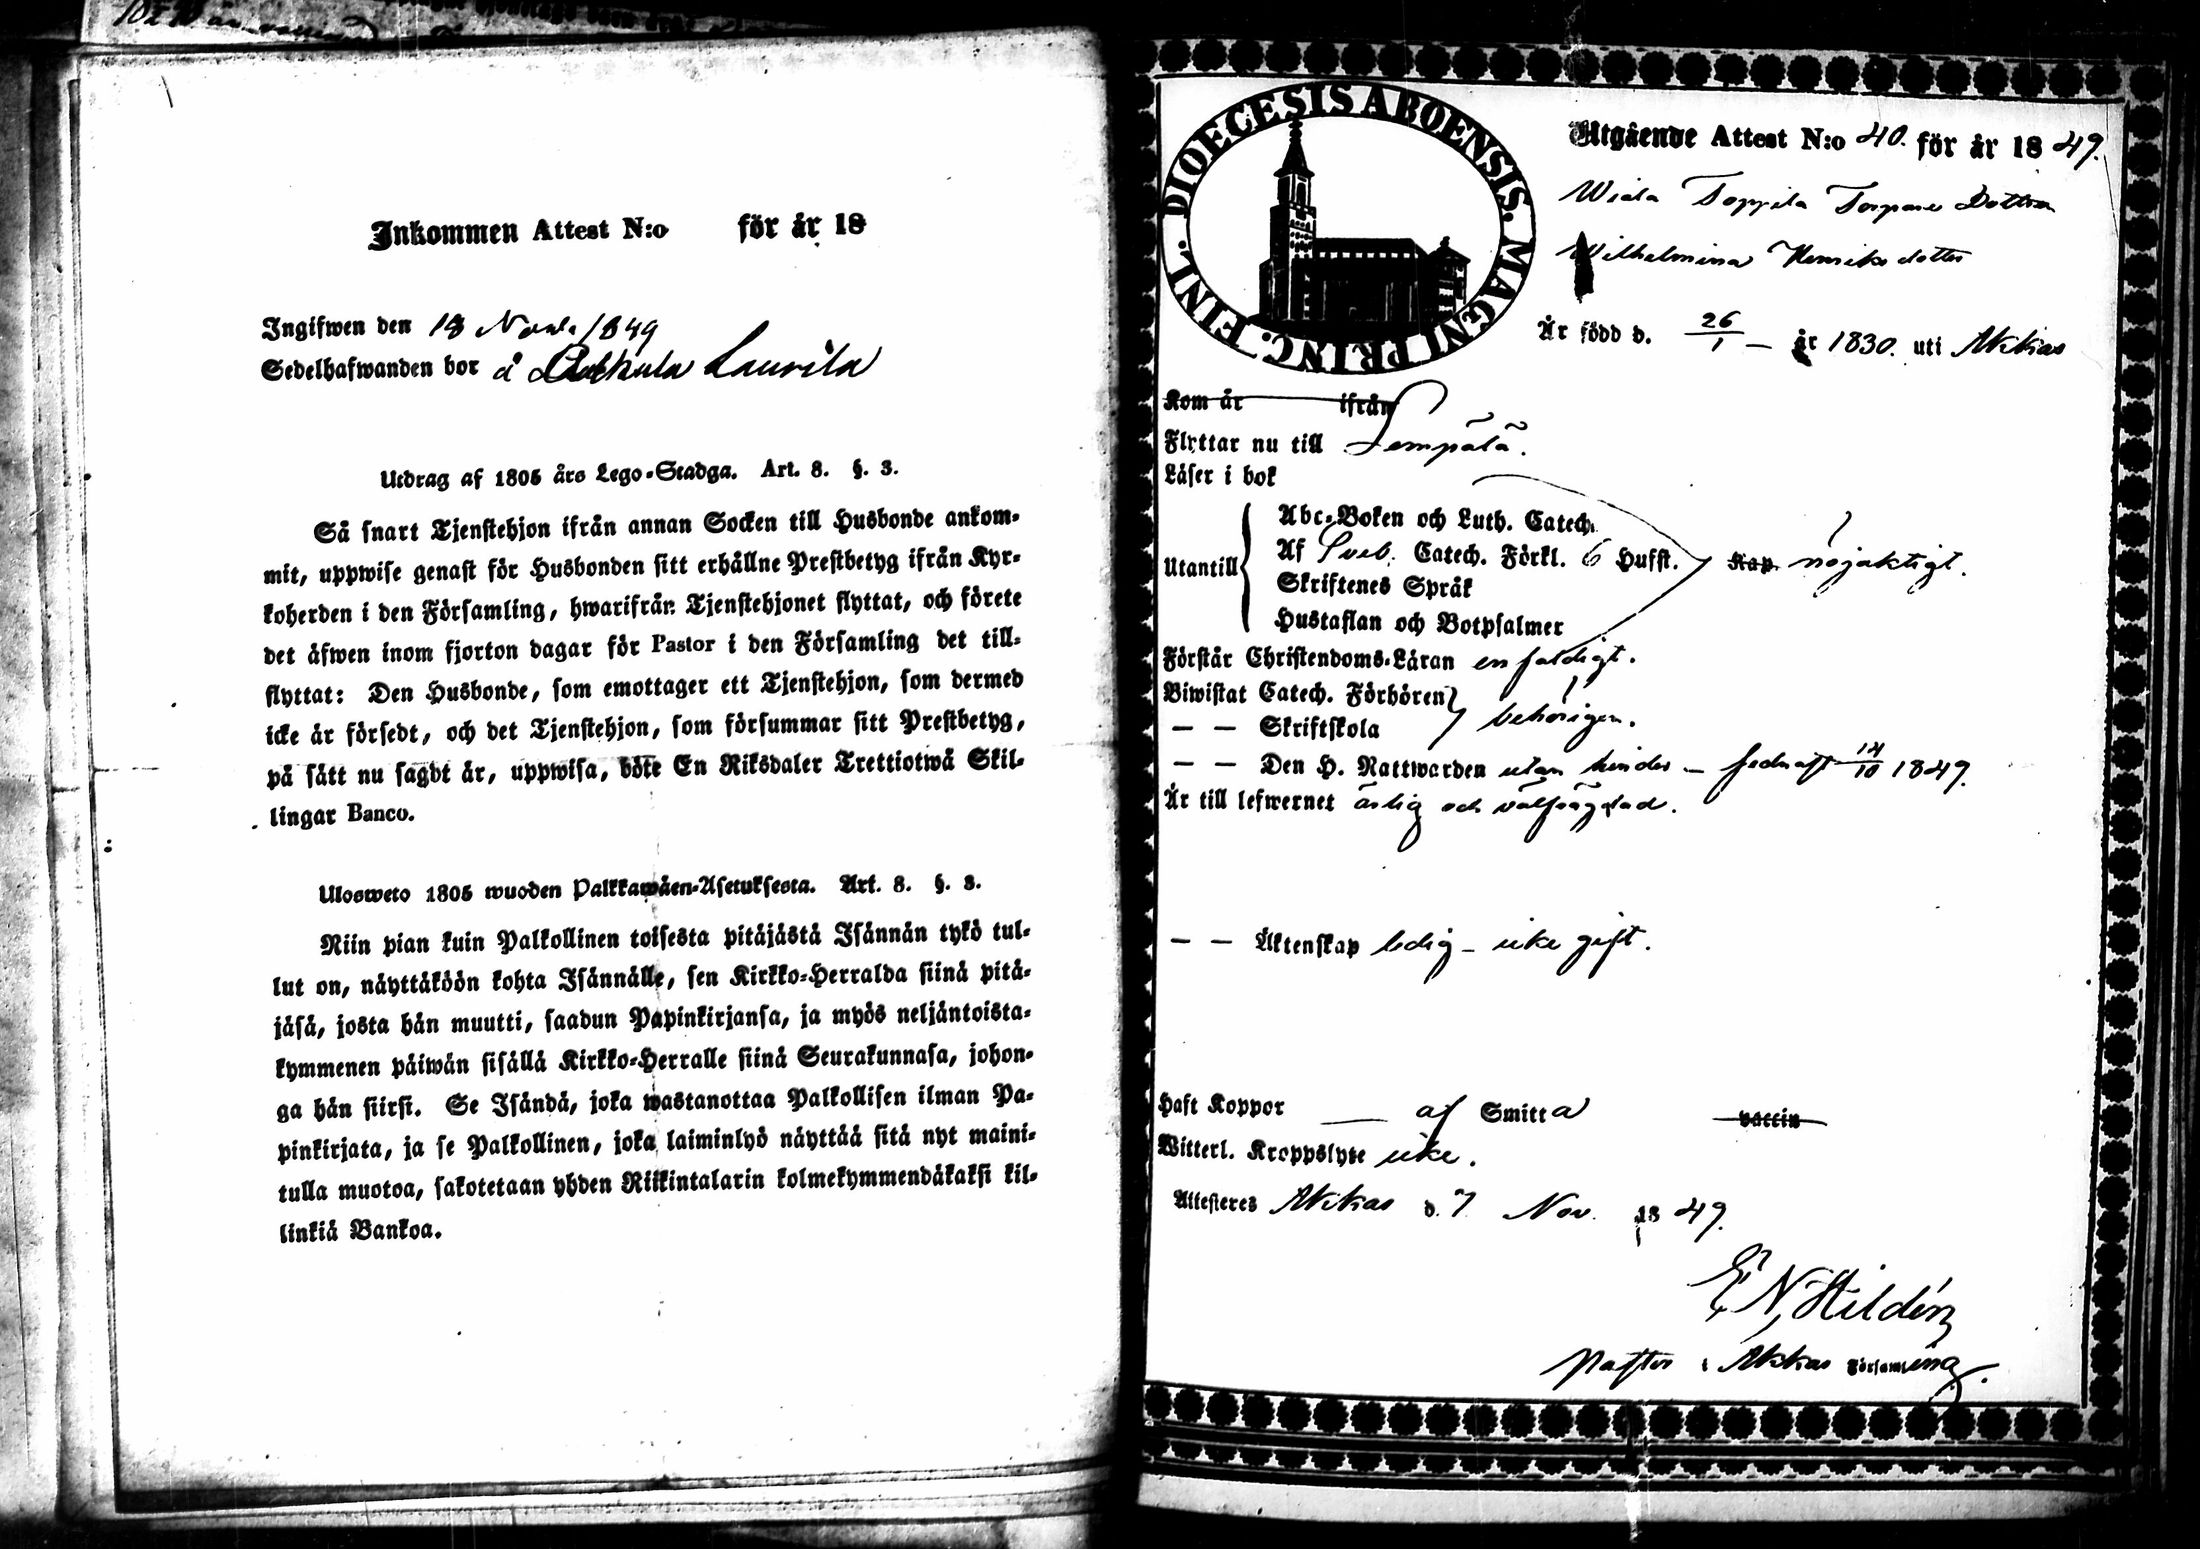 Inkommen Attest N:o för år 18
Ingifwen den 18 Nov. 1849
Sedelhafwanden bor å Kulju Laurila
Utdrag af 1805 års Lego-Stadga. Art. 8. §. 3.
Så snart Tjenstehjon ifrån annan Socken till Husbonde ankom-
mit, uppwise genast för Husbonden sitt erhållne Prestbetyg ifrån Kyr-
koherden i den Församling, hwarifrån Tjenstehjonet flyttat, och förete
det äfwen inom fjorton dagar för Pastor i den Församling det till-
flyttat: Den Husbonde, som emottager ett Tjenstehjon, som dermed
icke är försedt, och det Tjenstehjon, som försummar sitt Prestbetyg,
på sätt nu sagdt är, uppwisa, böte En Riksdaler Trettiotwå Skil-
lingar Banco.
Ulosweto 1805 wuoden Palkkawäen-Asetuksesta. Art. 8. §. 3.
Niin pian kuin Palkollinen toisesta pitäjästä Isännän tykö tul-
lut on, näyttäköön kohta Isännälle, sen Kirkko-Herralda siinä pitä-
jäsä, josta hän muutti, saadun Papinkirjansa, ja myös neljäntoista-
kymmenen päiwän sisällä Kirkko-Herralle siinä Seurakunnasa, johon-
ga hän siirsi. Se Isändä, joka wastanottaa Palkollisen ilman Pa-
pinkirjata, ja se Palkollinen, joka laiminlyö näyttää sitä nyt maini-
tulla muotoa, sakotetaan yhden Riikintalarin kolmekymmendäkaksi kil-
linkiä Bankoa.
DIOECESIS ABOENSIS. MAGNI PRINC. FINL.
Utgående Attest N:o 40. för år 1849.
Wiala Toppila Torpare Dottren
Wilhelmina Henriksdotter
Är född d. 26/1 – år 1830. uti Akkas
Kom år ifrån
Flyttar nu till Lempälä.
Läser i bok
Utantill
Abc-Boken och Luth. Catech.
Af Sveb. Catech. Förkl. 6 Hufst. Kap. nöjaktigt.
Skriftenes Språk
Hustaflan och Botpsalmer
Förstår Christendoms-Läran enfaldigt.
Biwistat Catech. Förhören
— — Skriftskola behörigen.
— — Den H. Nattwarden utan hinder – sednast 14/10 1849.
Är till lefwernet ärlig och välfrägdad.
— — Äktenskap ledig – icke gift.
Haft Koppor — af Smitta vaccin
Witterl. Kroppslyte icke.
Attesteres Akkas d. 7 Nov. 1849.
E N Hildén
Pastor i Akkas Församling.